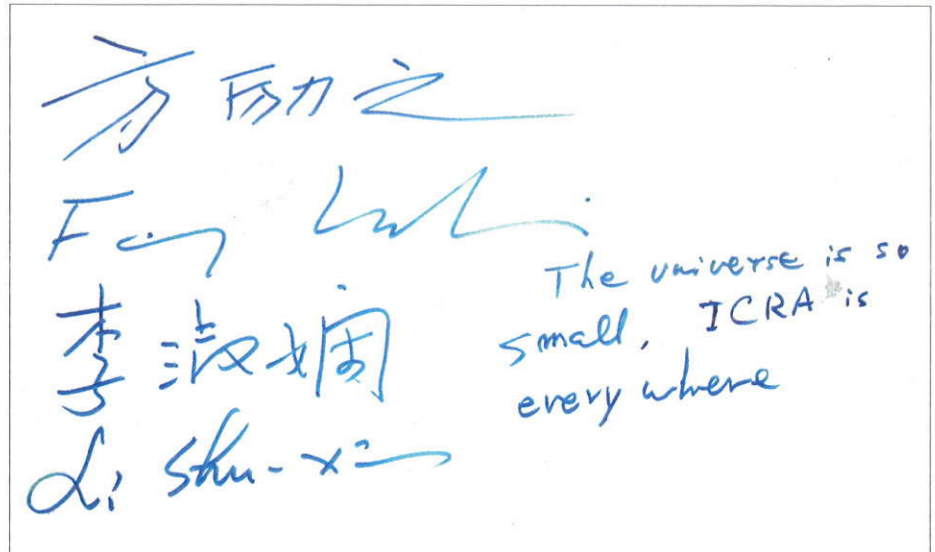 方励之
Fang Li-zhi
李淑娴
Li Shu-xian
The universe is so
small, ICRA is
every where